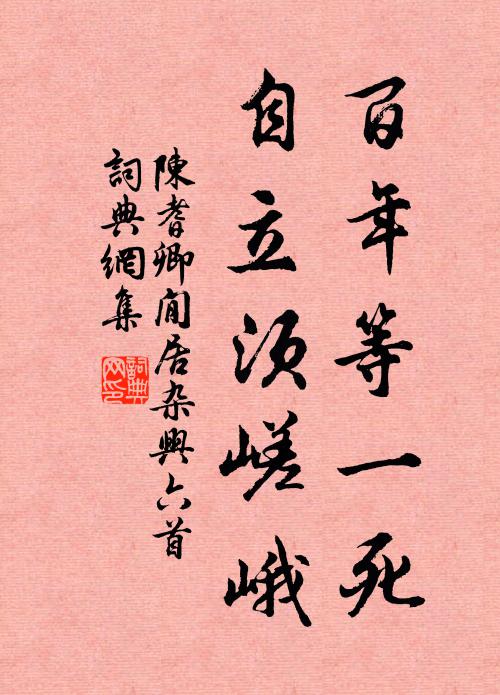 百年等一死
自立須嵯峨
陳耆卿閒居杂興六首
詞典網集
詞典
网印